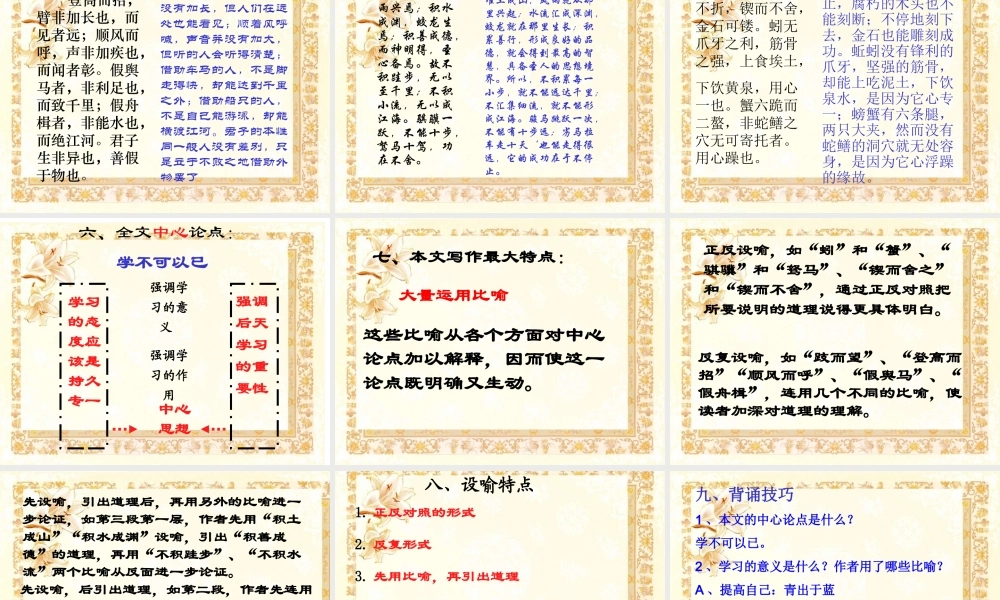 登高而招，
臂非加长也，而
见者远；顺风而
呼，声非加疾也，
而闻者彰。假舆
马者，非利足也，
而致千里；假舟
楫者，非能水也，
而绝江河。君子
生非异也，善假
于物也。
没有加长，但人们在远
处也能看见；顺着风呼
喊，声音并没有加大，
但听的人会听得清楚；
借助车马的人，不是脚
走得快，却能达到千里
之外；借助船只的人，
不是自己能游泳，却能
横渡江河。君子的本性
同一般人没有差别，只
是立于不败之地借助外
物罢了
雨兴焉；积水
成渊，蛟龙生
焉；积善成德，
而神明得，圣
心备焉。故不
积跬步，无以
至千里；不积
小流，无以成
江海。骐骥一
跃，不能十步，
驽马十驾，功
在不舍。
里兴起；水流汇成深渊，
蛟龙就在那里生长；积
累善行，形成良好的品
德，就会得到最高的智
慧，具备圣人的思想境
界。所以，不积累每一
小步，就不能远达千里；
不汇集细流，就不能形
成江海。骏马跳跃一次，
不能有十步远；劣马拉
车走十天，也能走得很
远，它的成功在于不停
止。
不折；锲而不舍，
金石可镂。蚓无
爪牙之利，筋骨
之强，上食埃土，
下饮黄泉，用心
一也。蟹六跪而
二螯，非蛇鳝之
穴无可寄托者。
用心躁也。
止，腐朽的木头也不
能刻断；不停地刻下
去，金石也能雕刻成
功。蚯蚓没有锋利的
爪牙，坚强的筋骨，
却能上吃泥土，下饮
泉水，是因为它心专
一；螃蟹有六条腿，
两只大夹，然而没有
蛇鳝的洞穴就无处容
身，是因为它心浮躁
的缘故。
六、全文中心论点：
学不可以已
学习
的态
度应
该是
持久
专一
强调学
习的意
义
强调学
习的作
用
中心
思想
强调
后天
学习
的重
要性
七、本文写作最大特点：
大量运用比喻
这些比喻从各个方面对中心
论点加以解释，因而使这一
论点既明确又生动。
正反设喻，如“蚓”和“蟹”、“
骐骥”和“驽马”、“锲而舍之”
和“锲而不舍”，通过正反对照把
所要说明的道理说得更具体明白。
反复设喻，如“跂而望”、“登高而
招”“顺风而呼”、“假舆马”、“
假舟楫”，连用几个不同的比喻，使
读者加深对道理的理解。
先设喻，引出道理后，再用另外的比喻进一
步论证，如第三段第一层，作者先用“积土
成山”“积水成渊”设喻，引出“积善成
德”的道理，再用“不积跬步”、“不积水
流”两个比喻从反面进一步论证。
先设喻，后引出道理，如第二段，作者先连用
八、设喻特点
1. 正反对照的形式
2. 反复形式
3. 先用比喻，再引出道理
九、背诵技巧
1、本文的中心论点是什么？
学不可以已。
2、学习的意义是什么？作者用了哪些比喻？
A、提高自己：青出于蓝